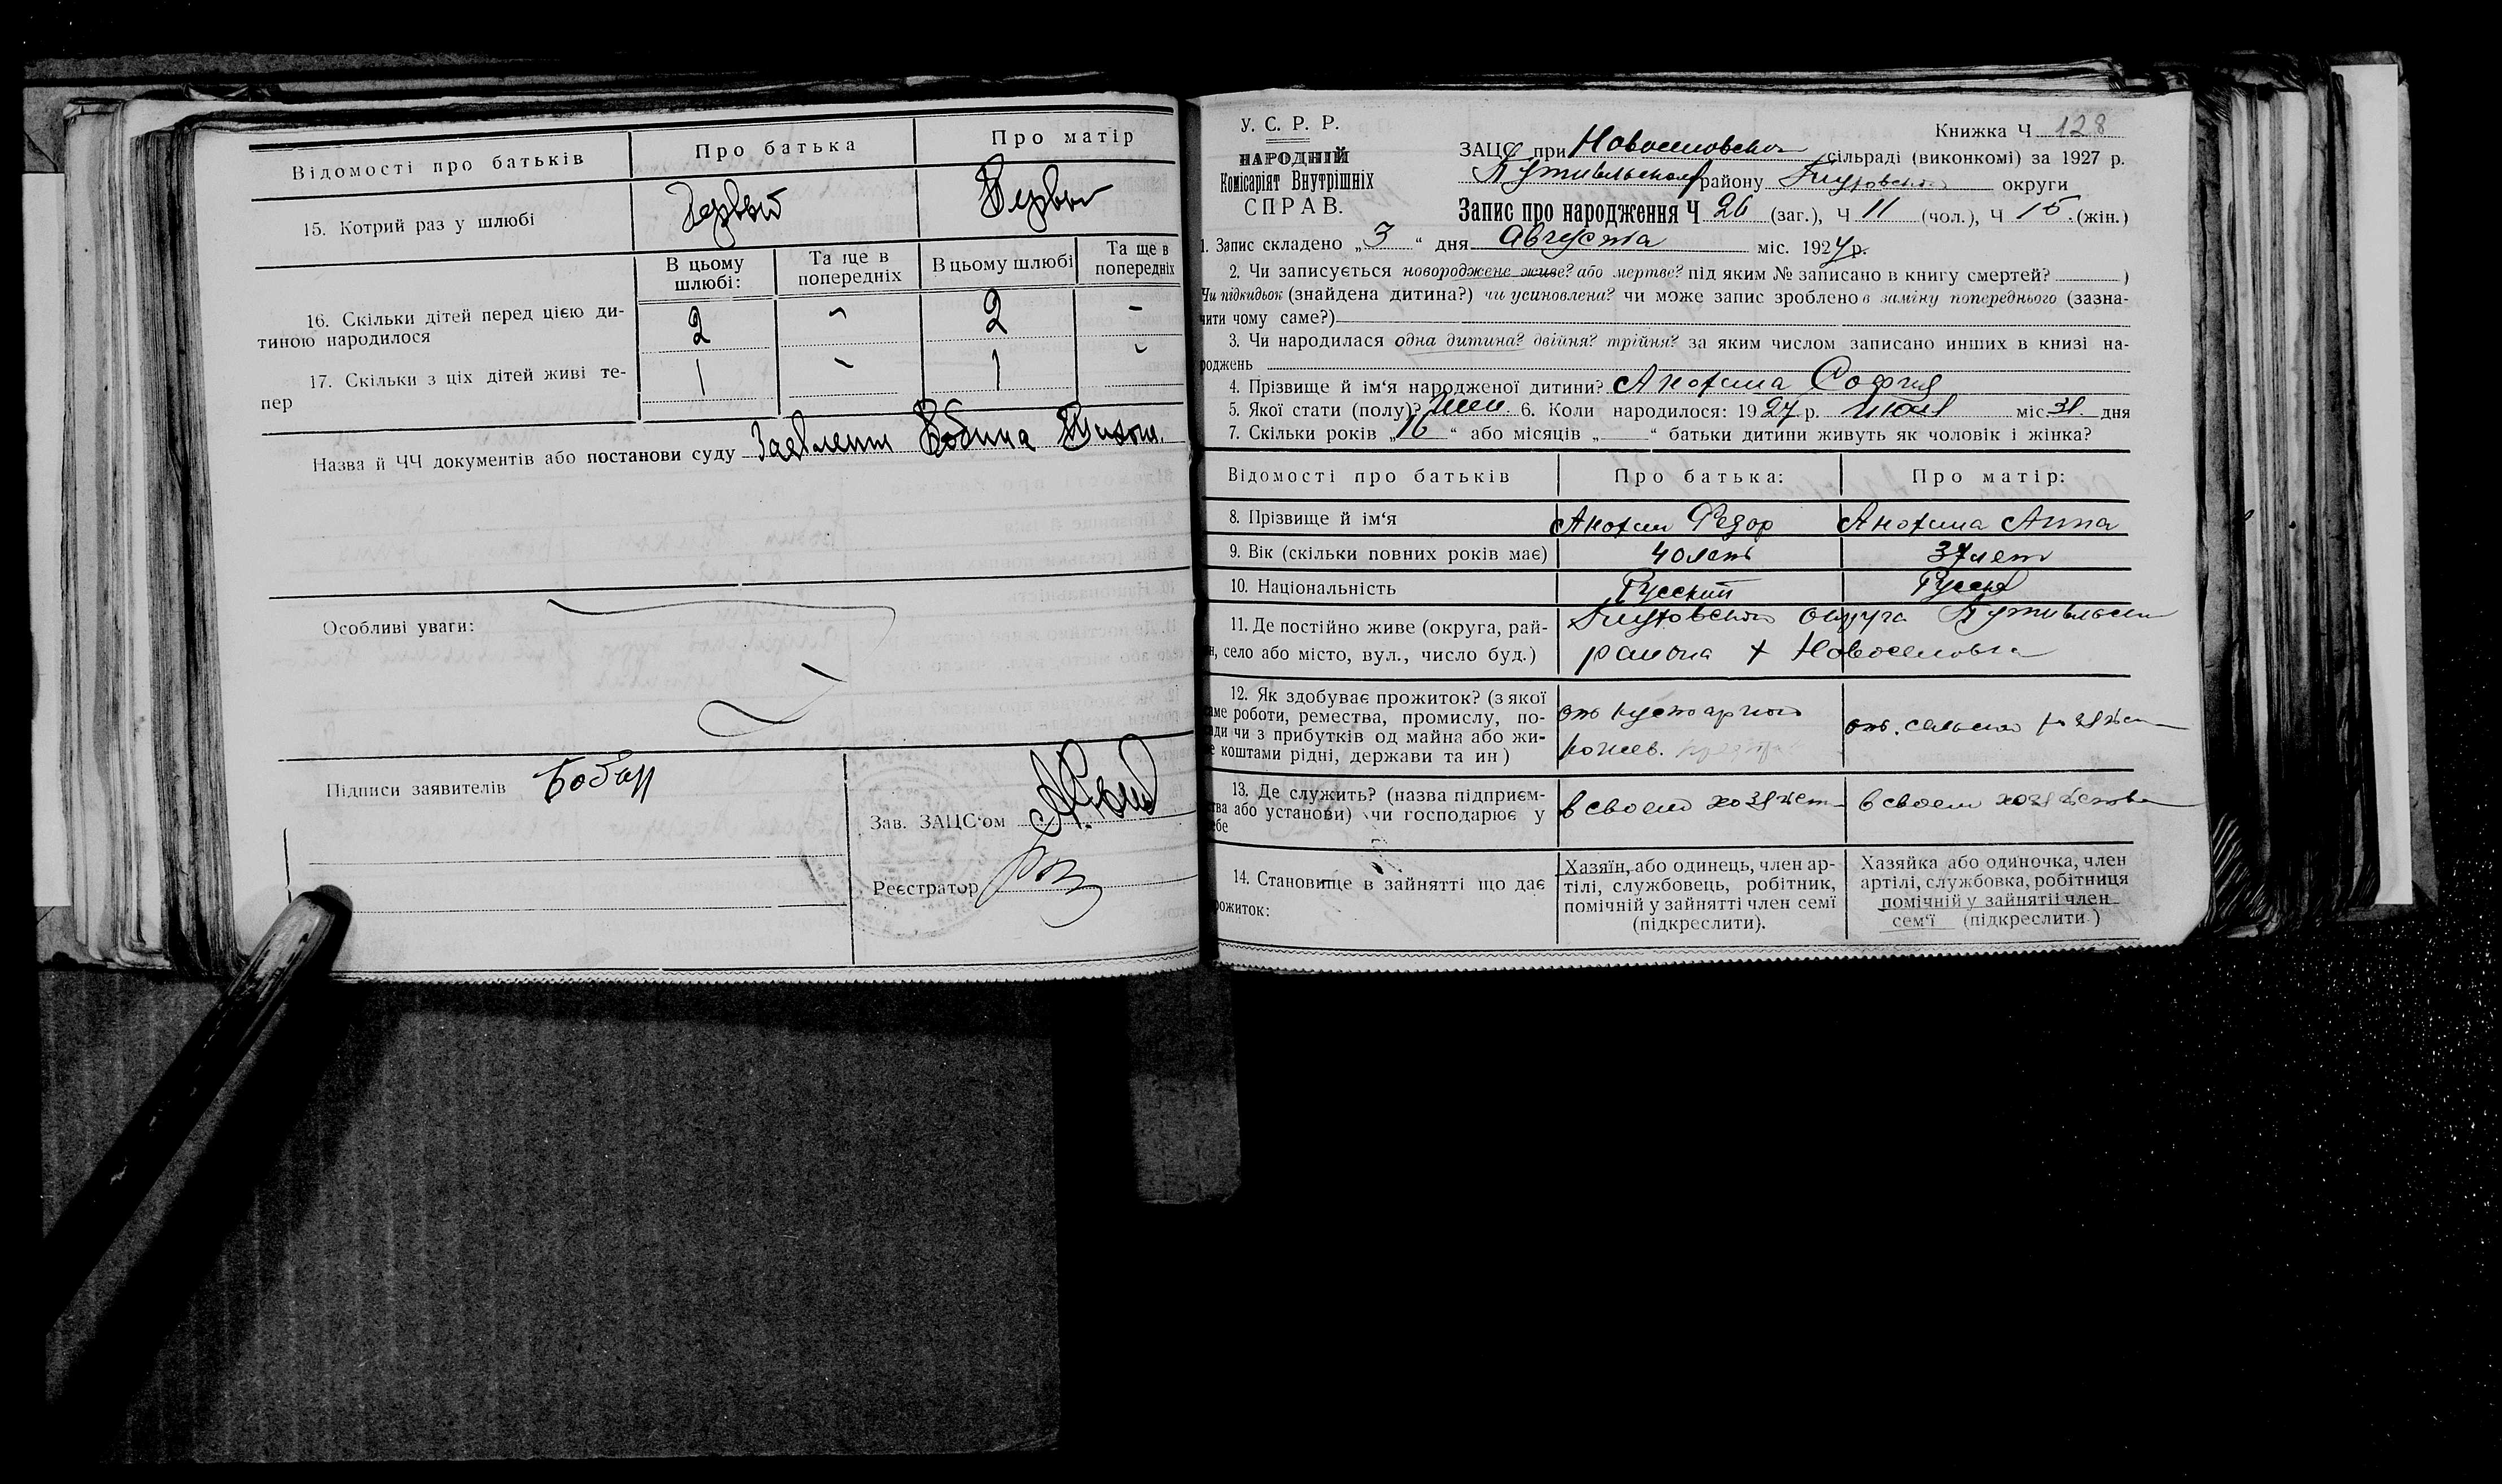 Відомості про батьків
Про батька
Про матір
15. Котрий раз у шлюбі
Первый
Первы
В цьому шлюбі:
Та ще в попередніх
В цьому шлюбі
Та ще в попередніх
16. Скільки дітей перед цією ди-
тиною народилося
2
-
2
-
17. Скільки з ціх дітей живі те-
пер
1
-
1
-
Назва й ЧЧ документів або постанови суду
Особливі уваги:
Підписи заявителів
Зав. ЗАЦС‘ом
Реєстратор
У. С. Р. Р.
НАРОДНІЙ
Комісаріят Внутрішніх
СПРАВ.
Книжка Ч 128
ЗАЦС при Новоселовской сільраді (виконкомі) за 1927 р.
Путивльском району Глуховской округи
Запис про народження Ч 26 (заг.), Ч 11 (чол.), Ч 15 (жін.)
1. Запис складено „3“ дня Августа міс. 1927 р.
2. Чи записується новороджене живе? або мертве? під яким № записано в книгу смертей? )
Чи підкидьок (знайдена дитина?) чи усиновлена? чи може запис зроблено в заміну попереднього (зазна-
чити чому саме?)
3. Чи народилася одна дитина? двійня? трійня? за яким числом записано инших в книзі на-
роджень
4. Прізвище й ім‘я народженої дитини? Анохина София
5. Якої стати (полу)? жен. 6. Коли народилося: 1927 р. Июля міс. 31 дня
7. Скільки років „16“ або місяців „ “ батьки дитини живуть як чоловік і жінка?
Відомості про батьків
Про батька:
Про матір:
8. Прізвище й ім‘я
Анохин Федор
Анохина Анна
9. Вік (скільки повних років має)
40 летъ
37 лет
10. Національність
Русский
Русская
11. Де постійно живе (округа, рай-
н, село або місто, вул., число буд.)
Глуховской округа Путивльски
района х Новоселовка
12. Як здобуває прожиток? (з якої
аме роботи, ремества, промислу, по-
ади чи з прибутків од майна або жи-
е коштами рідні, держави та ин)
13. Де служить? (назва підприєм-
тва або установи) чи господарює у
ебе
в своем хозяйст
в своем хозяйстве
14. Становище в зайнятті що дає
рожиток:
Хазяїн, або одинець, член ар-
тілі, службовець, робітник,
помічній у зайнятті член семї
(підкреслити).
Хазяйка або одиночка, член
артілі, службовка, робітниця
помічній у зайнятіі член
сем‘ї (підкреслити )